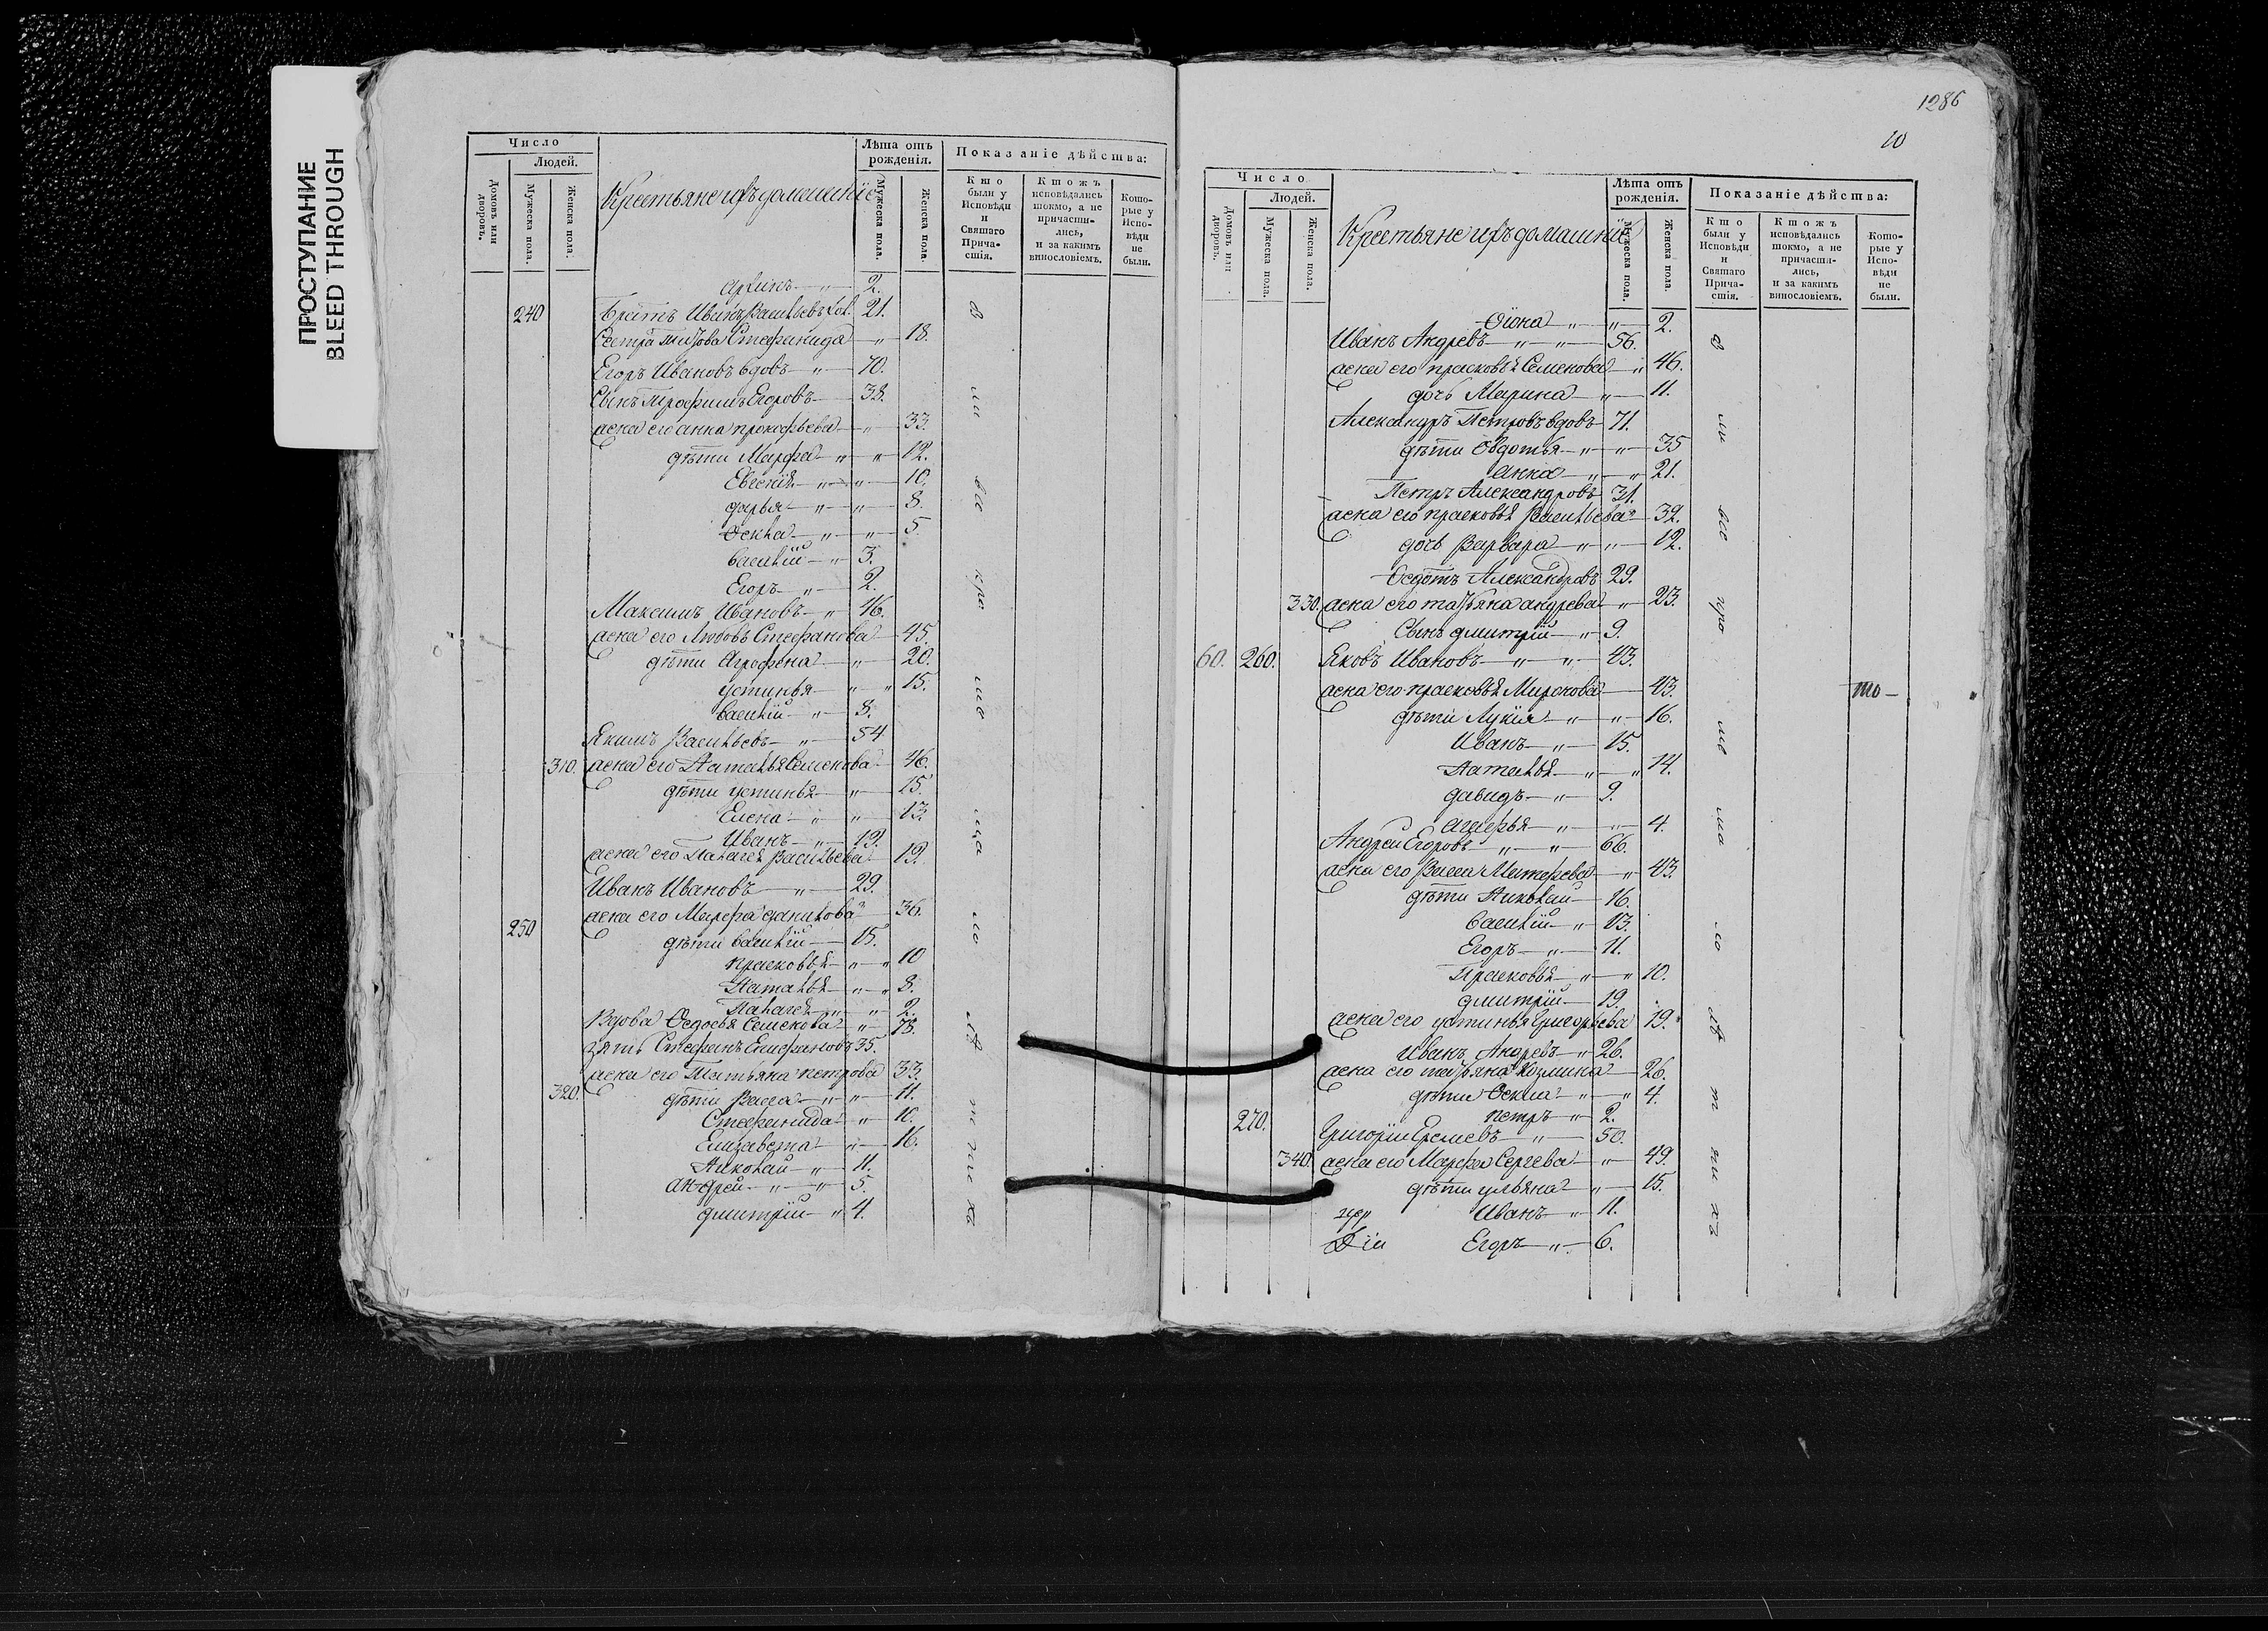 ПРОСТУПАНИЕ
BLEED THROUGH
Число
Людей.
Домовъ или дворовъ.
Мужеска пола.
Женска пола.
Крестьяне ихъ домашнїе
Лѣта отъ рожденія.
Мужеска пола.
Женска пола.
Показаніе дѣйства:
Кто были у Исповѣди и Святаго Причастія.
Ктожъ исповѣдались токмо, а не причастились, и за какимъ винословіемъ.
Которые у Исповѣди не были.
2.
240 братъ Иванъ Васильевъ 21.
Сестра Стефанида 18.
Егоръ Ивановъ вдовъ 70.
Сынъ трофимъ Егоровъ 38.
жена его анна прокофьева 33.
дѣти Марфа 12.
Евгенїя 10.
дарья 8.
Ѳекла 5.
василїй 3.
Егоръ 2.
Максимъ Ивановъ 46.
жена его Любовь Стефанова 45.
дѣти Агрофена 20.
устинья 15.
василїй 8.
Якимъ Васильевъ 54
310. жена его Наталья Семенова 46.
дѣти устинья 15.
Елена 13.
Иванъ 19.
жена его Палагея Васильева 19.
Иванъ Ивановъ 29.
жена его Марфа данилова 36.
250 дѣти василїй 15.
прасковья 10
Наталья 8.
Палагея 2.
Вдова Ѳедосья Семенова 73.
зять Стефанъ 35.
жена его Татьяна петрова 33.
320. дѣти Васса 11.
Стефанида
Елизавета 16.
Николай 11.
андрей 5.
дмитрїй 4.
1286
10
Число
Людей.
Домовъ или дворовъ.
Мужеска пола.
Женска пола.
Крестьяне ихъ домашнїе
Лѣта отъ рожденія.
Мужеска пола.
Женска пола.
Показаніе дѣйства:
Кто были у Исповѣди и Святаго Причастія.
Ктожъ исповѣдались токмо, а не причастились, и за какимъ винословіемъ.
Которые у Исповѣди не были.
2.
Иванъ Андревъ 56.
жена его прасковья Семенова 46.
дочь Марина 11.
Александръ Петровъ вдовъ 71.
дѣти Овдотья 35
анна 21.
Петръ Александровъ 31.
жена его прасковья Васильева 32.
дочь Варвара 12.
Ѳедотъ Александровъ 29.
330. жена его татьяна андрева 23.
Сынъ дмитрїй 9.
60. 260. Яковъ Ивановъ 43.
жена его прасковья Миронова 43. то
дѣти Лукїя 16.
Иванъ 15.
Наталья 14.
давидъ 9.
4.
Андрей Егоровъ 66.
жена его Васса 43.
дѣти Николай 16.
василїй 13.
Егоръ 11.
Прасковья 10.
дмитрїй 19.
жена его устинья Григорьева 19.
Иванъ Андревъ 26.
жена его татьяна Козмина 26.
дѣти Ѳекла 4.
270. петръ 2.
Григорїй Еремевъ 50.
340. жена его Марфа Сергева 49.
дѣти ульяна 15.
Иванъ 11.
Егоръ 6.